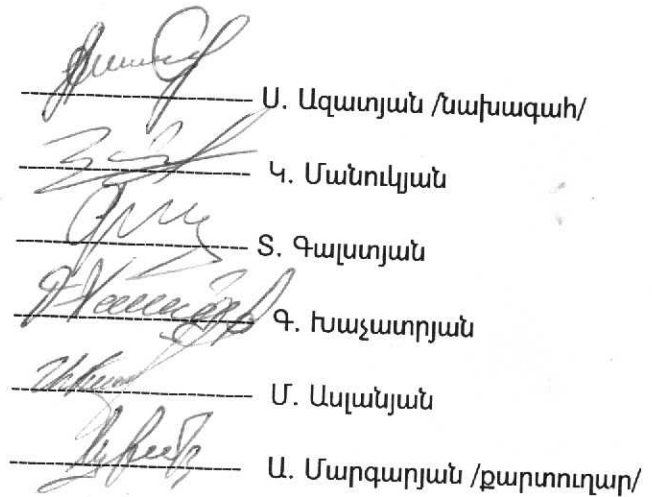 Ս. Ազատյան /նախագահ/
Կ. Մանուկյան
Տ. Գալստյան
Գ. Խաչատրյան
Մ. Ասլանյան
Ա. Մարգարյան /քարտուղար/